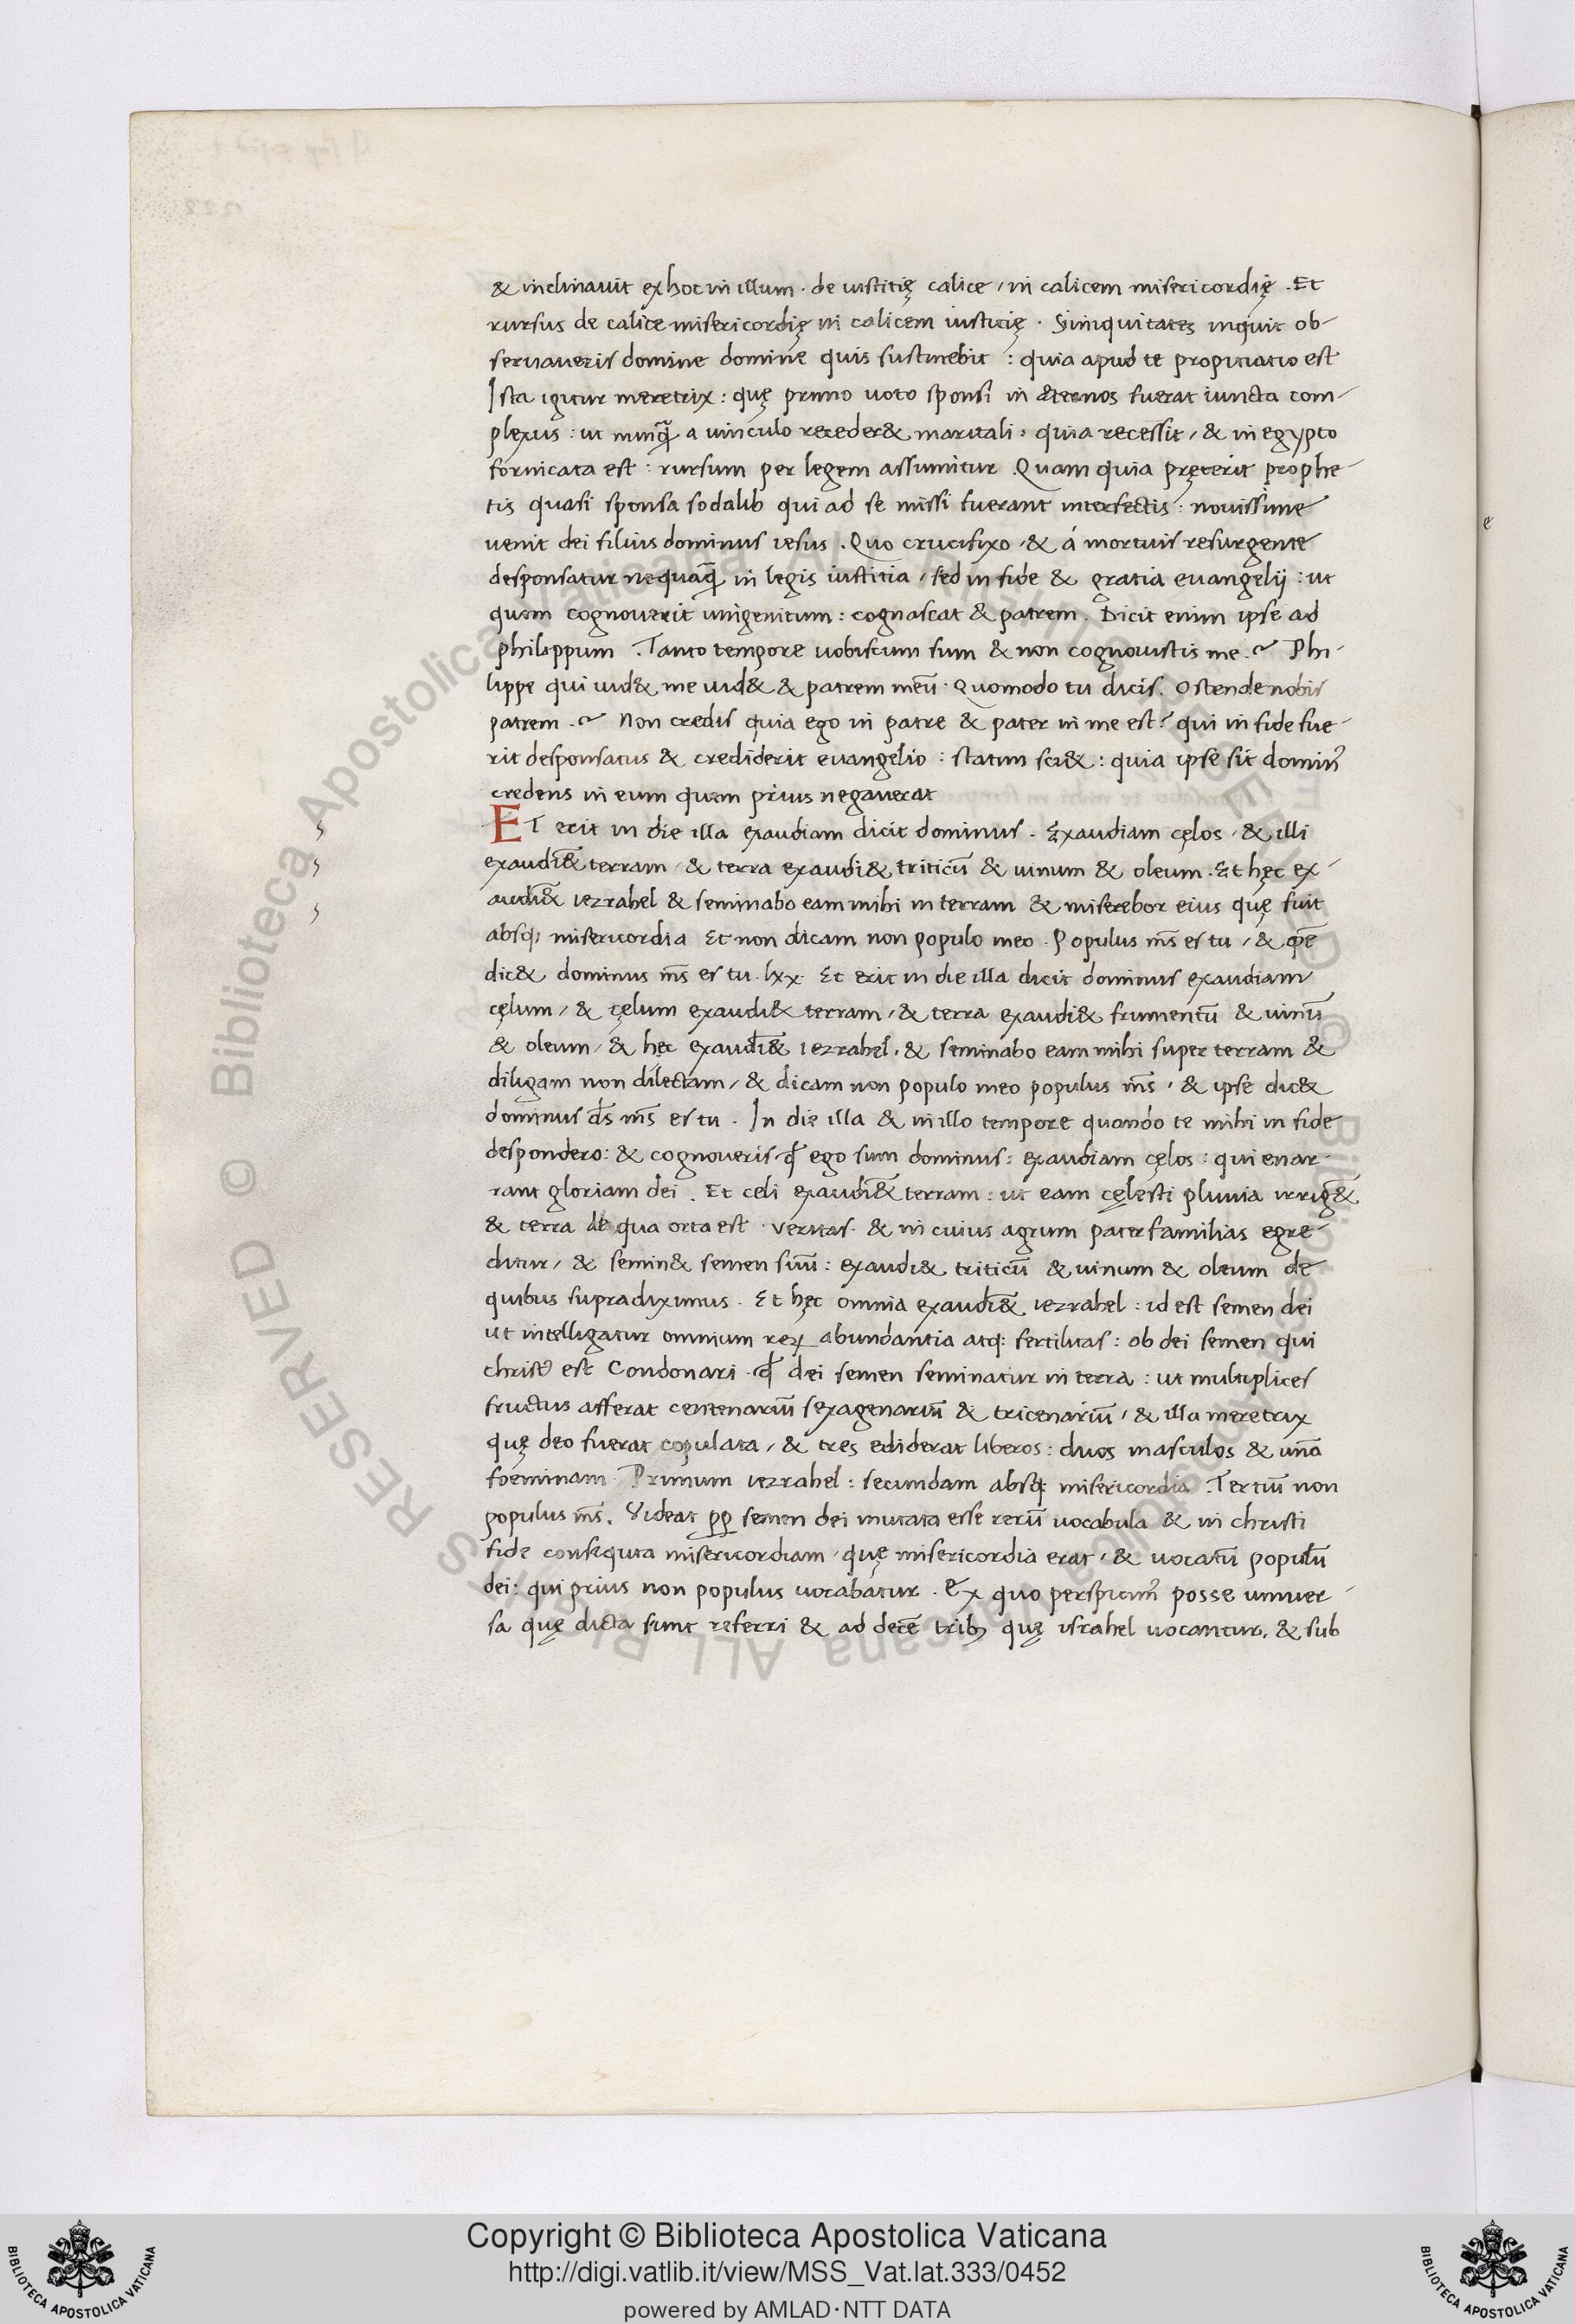 & inclinauit ex hoc in illum · de iustitię calice / in calicem misericordię . Et
rursus de calice misericordię in calicem iusticię · Siiniquitates inquit ob-
seruaueris domine domine quis sustinebit : quia apud te propitiatio est
Ista igitur meretrix : quę primo uoto sponsi in ęternos fuerat iuncta com-
plexus : ut nunq̃ a uinculo receder& maritali : quia recessit / & in egypto
fornicata est : rursum per legem assumitur . Quam quia pręterit prophe-
tis quasi sponsa sodalib qui ad se missi fuerant interfectis : nouissime
uenit dei filius dominus iesus . Quo crucifixo / & á mortuis resurgente
desponsatur nequaq̃ in legis iustitia / sed in fide & gratia euangelij : ut
quem cognouerit unigenitum : cognoscat & patrem . Dicit enim ipse ad
philippum . Tanto tempore uobiscum sum & non cognouistis me .~ Phi-
lippe qui uid& me uid& & patrem meū · Quomodo tu dicis . Ostende nobis
patrem .~ Non credis quia ego in patre & pater in me est? qui in fide fue-
rit desponsatus & crediderit euangelio : statim sci& : quia ipse sit domin᾽
credens in eum quem prius negauerat
ET erit in die illa exaudiam dicit dominus . Exaudiam cęlos / & illi
exaudi&̄ terram / & terra exaudi& triticū & uinum & oleum . Et hęc ex-
audi&̄ iezrahel & seminabo eam mihi in terram & miserebor eius quę fuit
absq; misericordia Et non dicam non populo meo . Populus m̄s es tu / & ip̄e
dic& dominus m̄s es tu . lxx . Et erit in die illa dicit dominus exaudiam
cęlum / & cęlum exaudi& terram / & terra exaudi& frumentū & uinū
& oleum / & hęc exaudi&̄ iezrahel . & seminabo eam mihi super terram &
diligam non dilectam / & dicam non populo meo populus m̄s / & ipse dic&
dominus d̄s m̄s es tu . In die illa & in illo tempore quando te mihi in fide
despondero : & cognoueris qđ ego sum dominus : exaudiam cęlos : qui enar-
rant gloriam dei . Et celi exaudi&̄ terram : ut eam cęlesti pluuia irrig&̄
& terra de qua orta est · veritas · & in cuius agrum paterfamilias egre-
ditur / & semin& semen suū : exaudi& triticū & uinum & oleum de
quibus supradiximus . Et hęc omnia exaudi&̄ iezrahel : id est semen dei
ut intelligatur omnium reꝝ abundantia atq; fertilitas : ob dei semen qui
christ᾽ est Condonari . qđ dei semen seminatur in terra : ut multiplices
fructus afferat centenariū sexagenariū & tricenariū / & illa meretrix
quę deo fuerat copulata / & tres ediderat liberos : duos masculos & unā
foeminam . Primum iezrahel : secundam absq; misericordia . Tertiū non
populus m̄s . Videat ꝓꝑ semen dei mutata esse rerū uocabula & in christi
fide consequta misericordiam / quę misericordia erat / & uocatū populū
dei : qui prius non populus uocabatur . Ex quo perspicim᾽ posse uniuer-
sa quę dicta sunt referri & ad decē trib; quę israhel uocantur . & sub
Copyright © Biblioteca Apostolica Vaticana
http://digi.vatlib.it/view/MSS_Vat.lat.333/0452
powered by AMLAD·NTT DATA